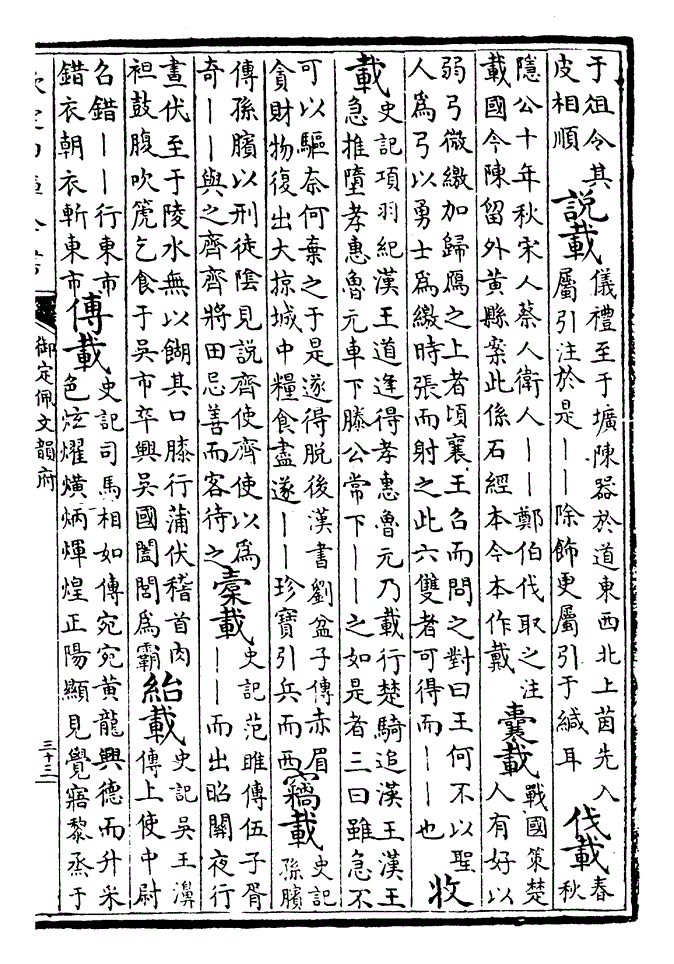 于俎令其
皮相順
說載
儀禮至于壙陳器於道東西北上茵先入
屬引注於是——除飾更屬引于緘耳
伐載
春
秋
隱公十年秋宋人蔡人衛人——鄭伯伐取之注
載國今陳留外黃縣案此係石經本今本作戴
囊載
戰國策楚
人有好以
弱弓微繳加歸鴈之上者頃襄王召而問之對曰王何不以聖
人為弓以勇士為繳時張而射之此六雙者可得而——也
收
載
史記項羽紀漢王道逢得孝惠魯元乃載行楚騎追漢王漢王
急推墮孝惠魯元車下滕公常下——之如是者三曰雖急不
可以驅奈何棄之于是遂得脫後漢書劉盆子傳赤眉
貪財物復出大掠城中糧食盡遂——珍寶引兵而西
竊載
史記
孫臏
傳孫臏以刑徒陰見說齊使齊使以為
奇——與之齊齊將田忌善而客待之
橐載
史記范睢傳伍子胥
——而出昭關夜行
晝伏至于陵水無以餬其口膝行蒲伏稽首肉
袒鼓腹吹箎乞食于吳市卒興吳國闔閭為霸
紿載
史記吳王濞
傳上使中尉
召錯——行東市
錯衣朝衣斬東市
傳載
史記司馬相如傳宛宛黃龍興德而升采
色炫燿熿炳煇煌正陽顯見覺寤黎烝于
御定佩文韻府
三十三